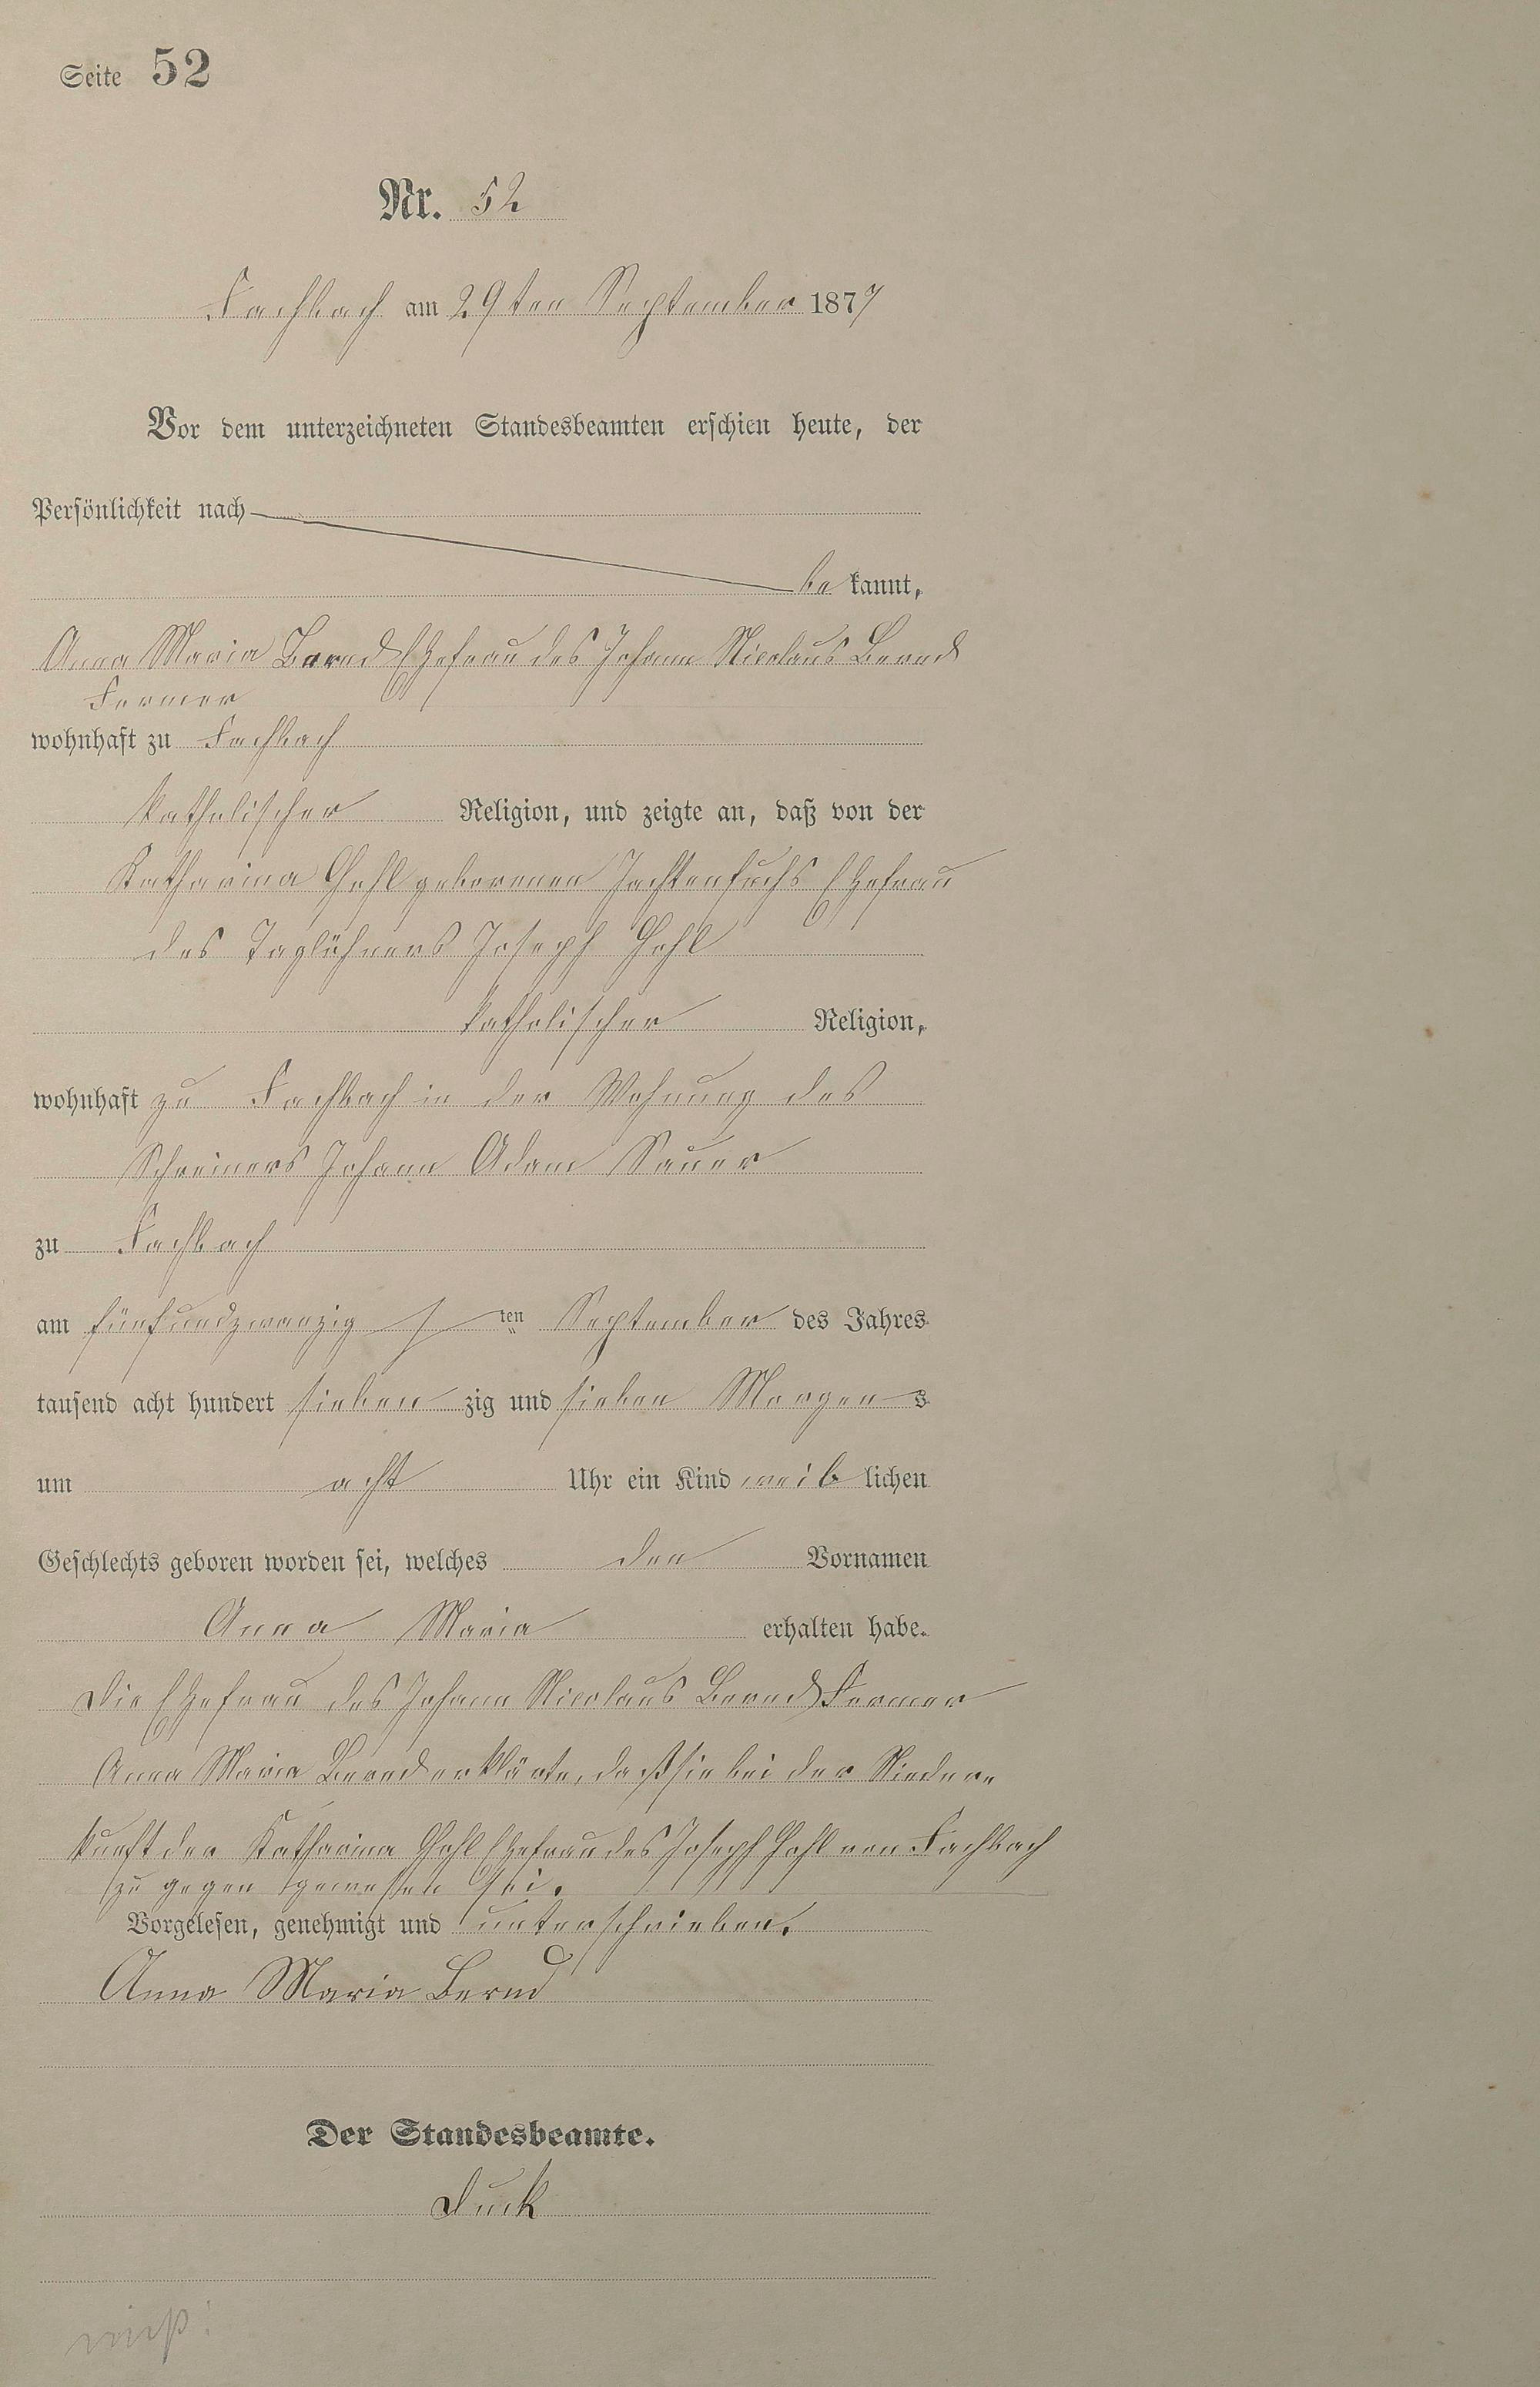 Seite 52
Nr. 52
Fachbach am 29ten September 1877
Vor dem unterzeichneten Standesbeamten erschien heute, der
Persönlichkeit nach
be kannt,
Anna Maria Bernd Ehefrau des Johann Nicolaus Bernd
Former
wohnhaft zu Fachbach
katholischer Religion, und zeigte an, daß von der
Katharina Gohl geborenen Jachtenfuchs Ehefrau
des Taglöhners Joseph Gohl
katholischer Religion,
wohnhaft zu Fachbach in der Wohnung des
Schreiners Johann Adam Sauer
zu Fachbach
am fünfundzwanzig ten September des Jahres
tausend acht hundert sieben zig und sieben Morgens
um acht Uhr ein Kind weib lichen
Geschlechts geboren worden sei, welches den Vornamen
Anna Maria erhalten habe.
Die Ehefrau des Johann Nicolaus Bernd Former
Anna Maria Bernd erklärte, daß sie bei der Nieder=
kunft der Katharina Gohl Ehefrau des Joseph Gohl von Fachbach
zu gegen gewessen sei.
Vorgelesen, genehmigt und unterschrieben.
Anna Maria Bernd
Der Standesbeamte.
Duck